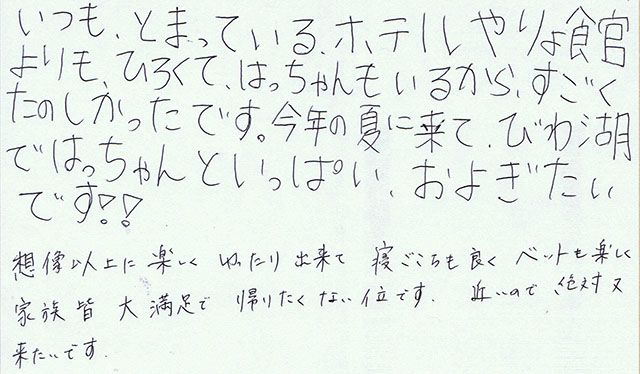 いつも、とまっている、ホテルやりょ館
よりも、ひろくて、はっちゃんもいるから、すごく
たのしかったです。今年の夏に来て、びわ湖
ではっちゃんといっぱい、およぎたい
です!!
想像以上に楽しくゆったり出来て 寝ごこちも良く ベットも楽しく
家族皆 大満足で 帰りたくない位です. 近いので 絶対又
来たいです.